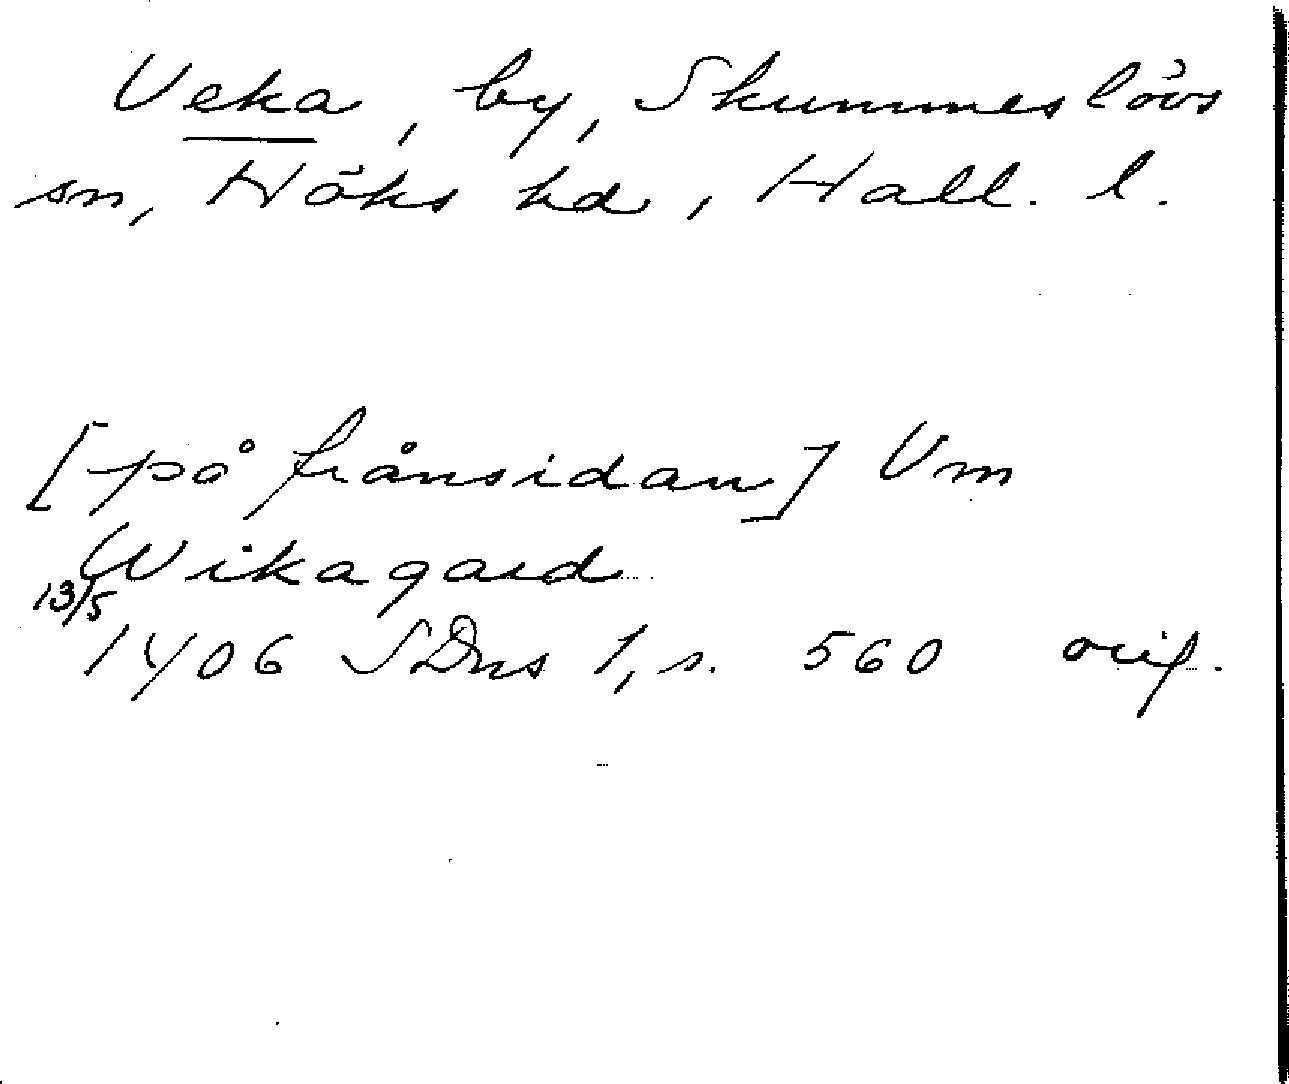 Veka, by, Skummeslövs
sn, Höks hd, Hall. l.
[på frånsidan] Um
Wikagard
13/5
1406 SDns 1, s. 560 orig.